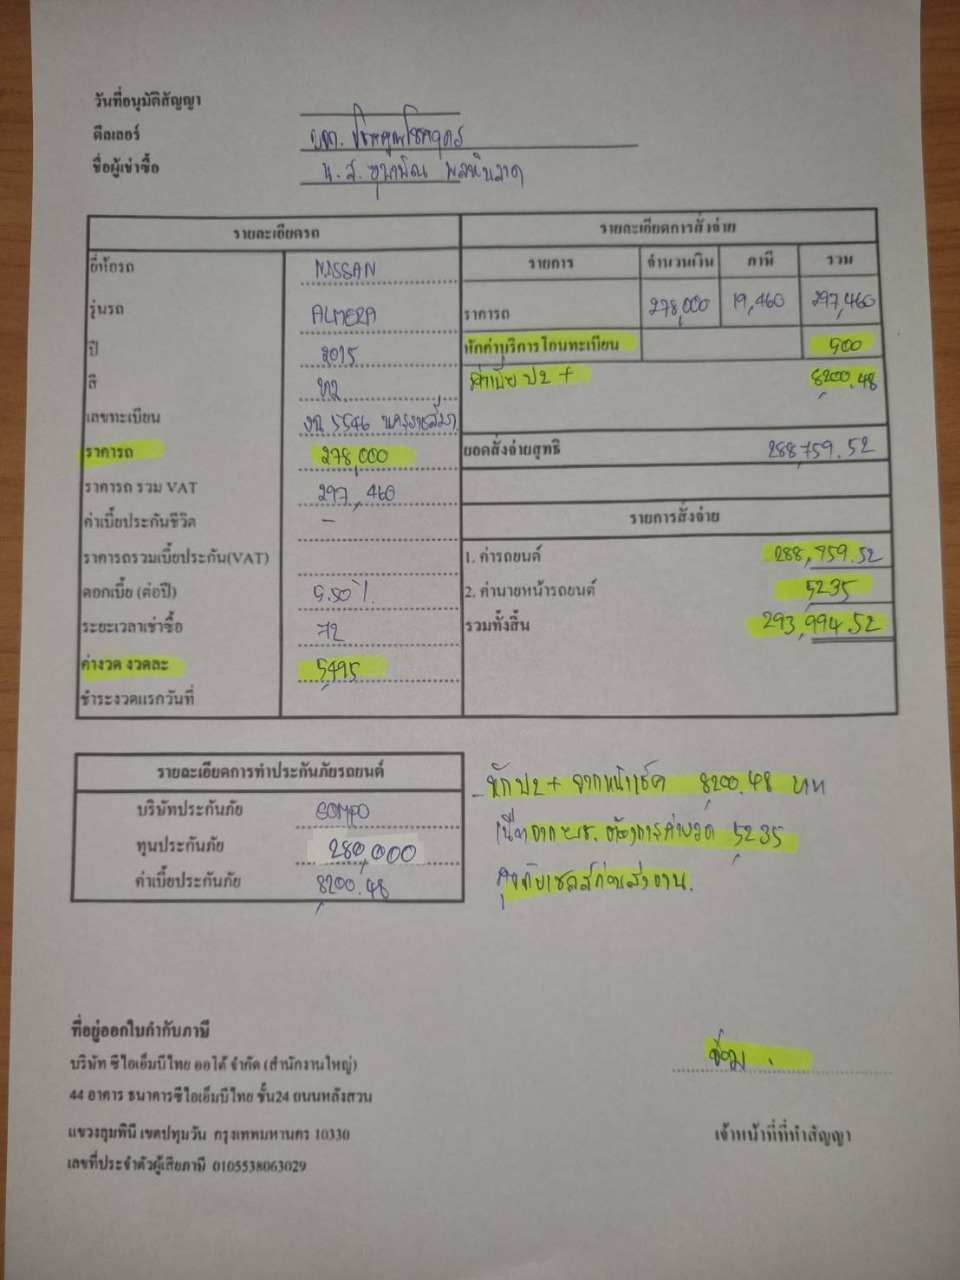 วันที่อนุมัติสัญญา
ดีลเลอร์ บจก.
ชื่อผู้เช่าซื้อ น.ส.
รายละเอียดรถ
ยี่ห้อรถ NISSAN
รุ่นรถ ALMERA
ปี 2015
สี เทา
เลขทะเบียน 5546 นครราชสีมา
ราคารถ 278,000
ราคารถ รวม VAT 297,460
ค่าเบี้ยประกันชีวิต -
ราคารถรวมเบี้ยประกัน(VAT)
ดอกเบี้ย (ต่อปี) 5.50%
ระยะเวลาเช่าซื้อ 72
ค่างวด งวดละ 5,495
ชำระงวดแรกวันที่
รายละเอียดการสั่งจ่าย
รายการ จำนวนเงิน ภาษี รวม
ราคารถ 278,000 19,460 297,460
หักค่าบริการโอนทะเบียน 500
ค่าเบี้ย ป2+ 8,200.48
ยอดสั่งจ่ายสุทธิ 288,759.52
รายการสั่งจ่าย
1. ค่ารถยนต์ 288,759.52
2. ค่านายหน้ารถยนต์ 5235
รวมทั้งสิ้น 293,994.52
รายละเอียดการทำประกันภัยรถยนต์
บริษัทประกันภัย SOMPO
ทุนประกันภัย 280,000
ค่าเบี้ยประกันภัย 8,200.48
- หัก ป2+ จากหน้าเช็ค 8,200.48 บาท
เนื่องจาก ต้องการค่างวด 5,235
คุยกับเซลส์ก่อนส่งงาน.
ที่อยู่ออกใบกำกับภาษี
บริษัท ซีไอเอ็มบีไทย ออโต้ จำกัด (สำนักงานใหญ่)
44 อาคาร ธนาคารซีไอเอ็มบีไทย ชั้น24 ถนนหลังสวน
แขวงลุมพินี เขตปทุมวัน กรุงเทพมหานคร 10330
เลขที่ประจำตัวผู้เสียภาษี 0105538063029
เจ้าหน้าที่ที่ทำสัญญา